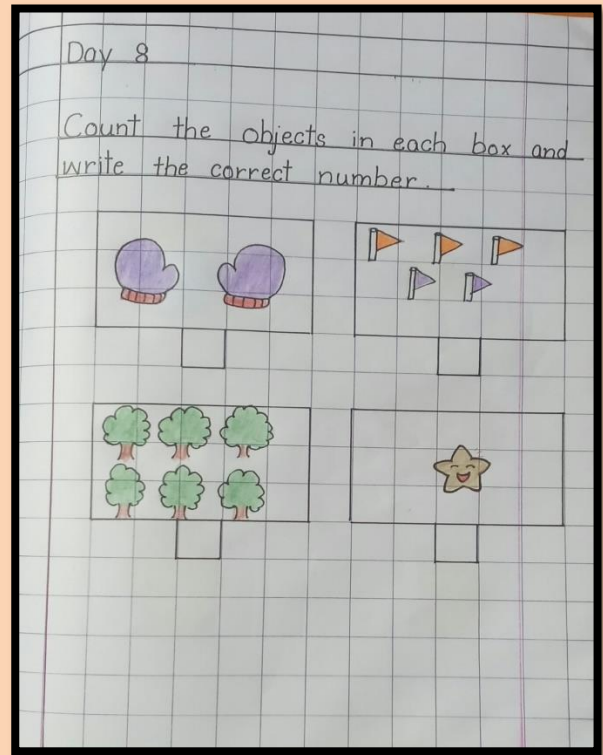 Day 8
Count the objects in each box and
write the correct number.